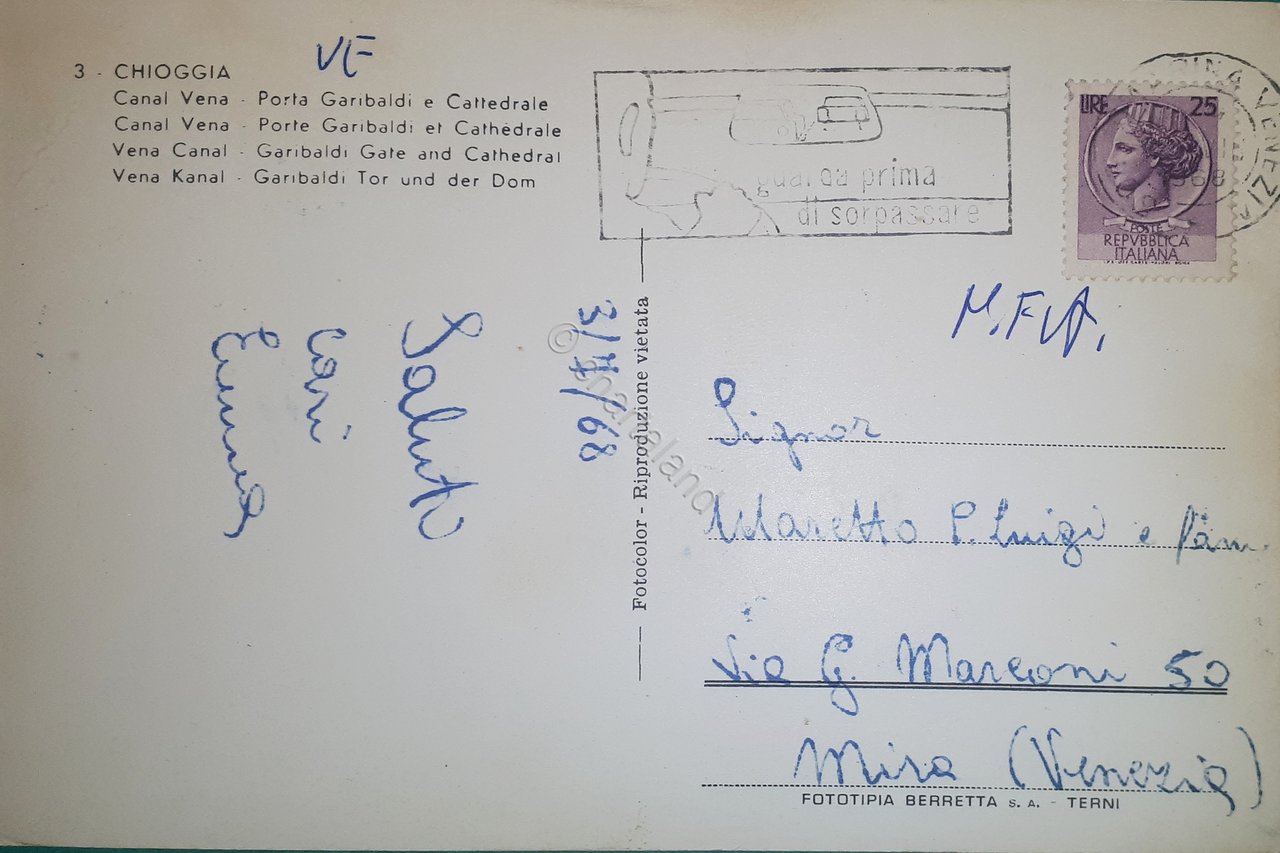 VE
3 - CHIOGGIA
Canal Vena - Porta Garibaldi e Cattedrale
Canal Vena - Porte Garibaldi et Cathédrale
Vena Canal - Garibaldi Gate and Cathedral
Vena Kanal - Garibaldi Tor und der Dom
guarda prima
di sorpassare
VENEZIA
1968
LIRE 25
POSTE
REPVBBLICA
ITALIANA
3/11/68
Saluti
cari
Emma
Fotocolor - Riproduzione vietata
Signor
Maretto P. Luigi e fam.
Via G. Marconi 50
Mira (Venezia)
FOTOTIPIA BERRETTA S. A. - TERNI